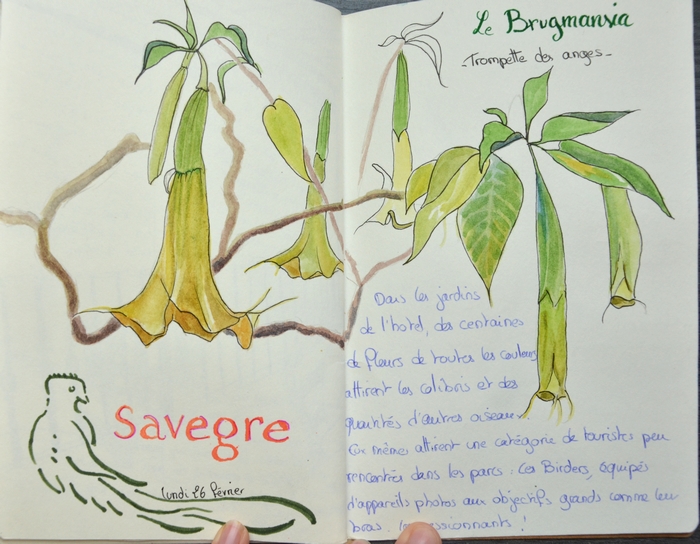 Savegre
lundi 26 février
Le Brugmansia
- Trompette des anges -
Dans les jardins
de l'hotel, des centaines
de fleurs de toutes les couleurs
attirent les colibris et des
quantités d'autres oiseaux.
Eux mêmes attirent une catégorie de touristes peu
rencontrés dans les parcs : Les Birders, équipés
d'appareils photos aux objectifs grands comme leur
bras. !